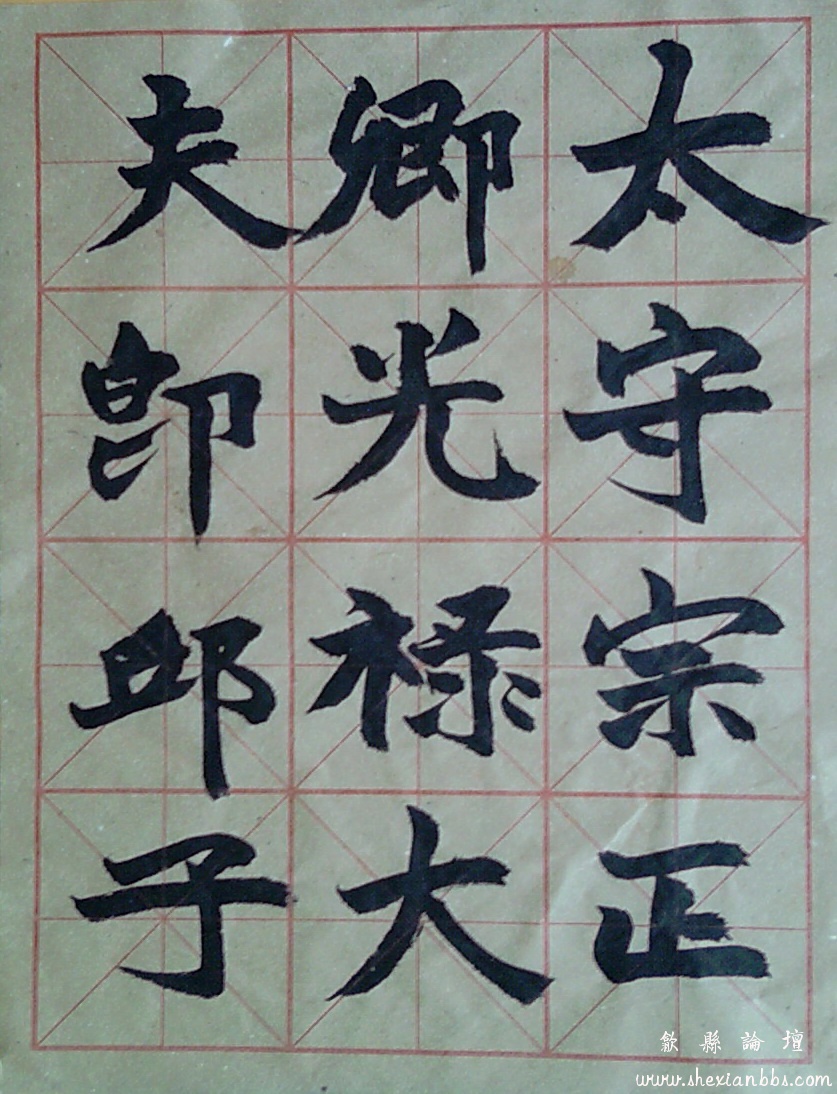 太守宗正
卿光禄大
夫即邱子
歙縣論壇
www.shexianbbs.com